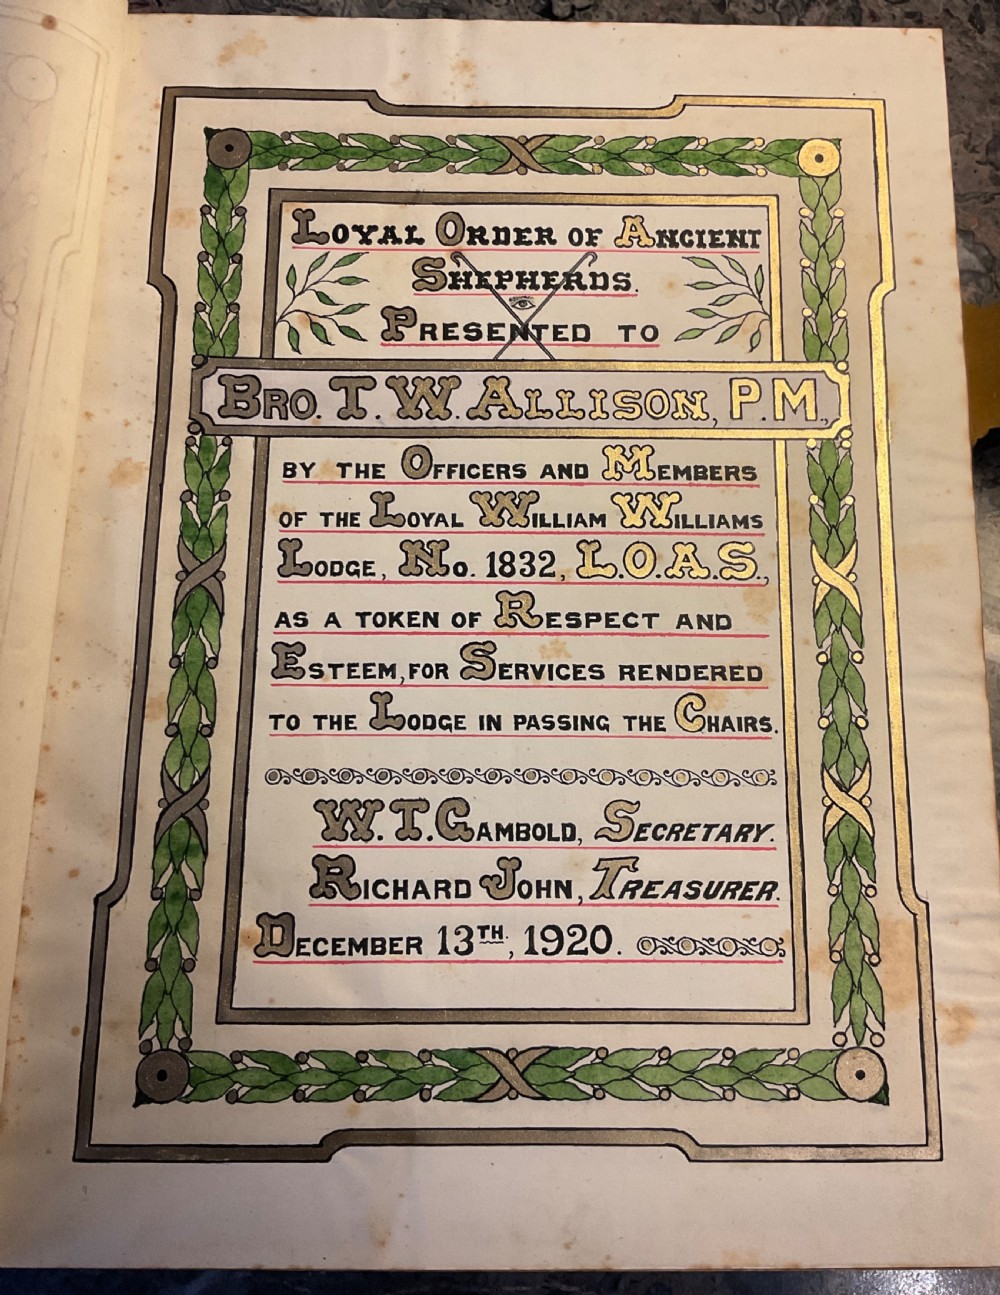 LOYAL ORDER OF ANCIENT
SHEPHERDS.
PRESENTED TO
BRO. T. W. ALLISON, P.M.,
BY THE OFFICERS AND MEMBERS
OF THE LOYAL WILLIAM WILLIAMS
LODGE, No. 1832, L.O.A.S.,
AS A TOKEN OF RESPECT AND
ESTEEM, FOR SERVICES RENDERED
TO THE LODGE IN PASSING THE CHAIRS.
W. T. GAMBOLD, SECRETARY.
RICHARD JOHN, TREASURER.
DECEMBER 13TH, 1920.